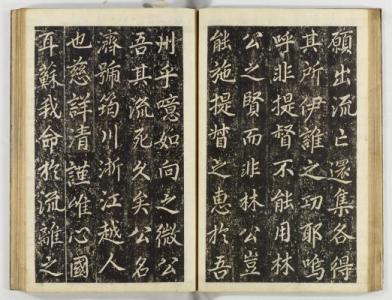 願出流亡還集各得
其所伊誰之功耶嗚
呼非提督不能用林
公之賢而非林公豈
能施提督之惠於吾
州乎噫如向之微公
吾其流死久矣公名
濟號筠川浙江越人
也慈詳清謹唯心國
耳蘇我命於流離之